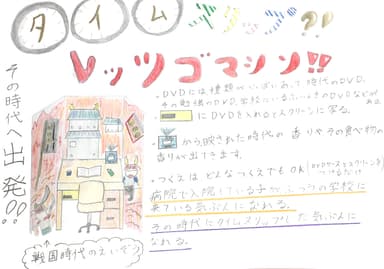 タイムスリップ!?
レッツゴマシン!!
・DVDには種類がいっぱいあって時代のDVD、
その勉強のDVD、出校している
にDVDを入れるとスクリーンに写る。
から映された時代の香りやその食べ物の
香りが出てきます。
・つくえはどんなつくえでもOK(DVDケースとスクリーンを
つけるだけ)
病院で入院している子が、ふつうの学校に
来ている気ぶんになれる。
その時代にタイムスリップした気ぶんに
なれる。
その時代へ出発!!
戦国時代のえいぞう